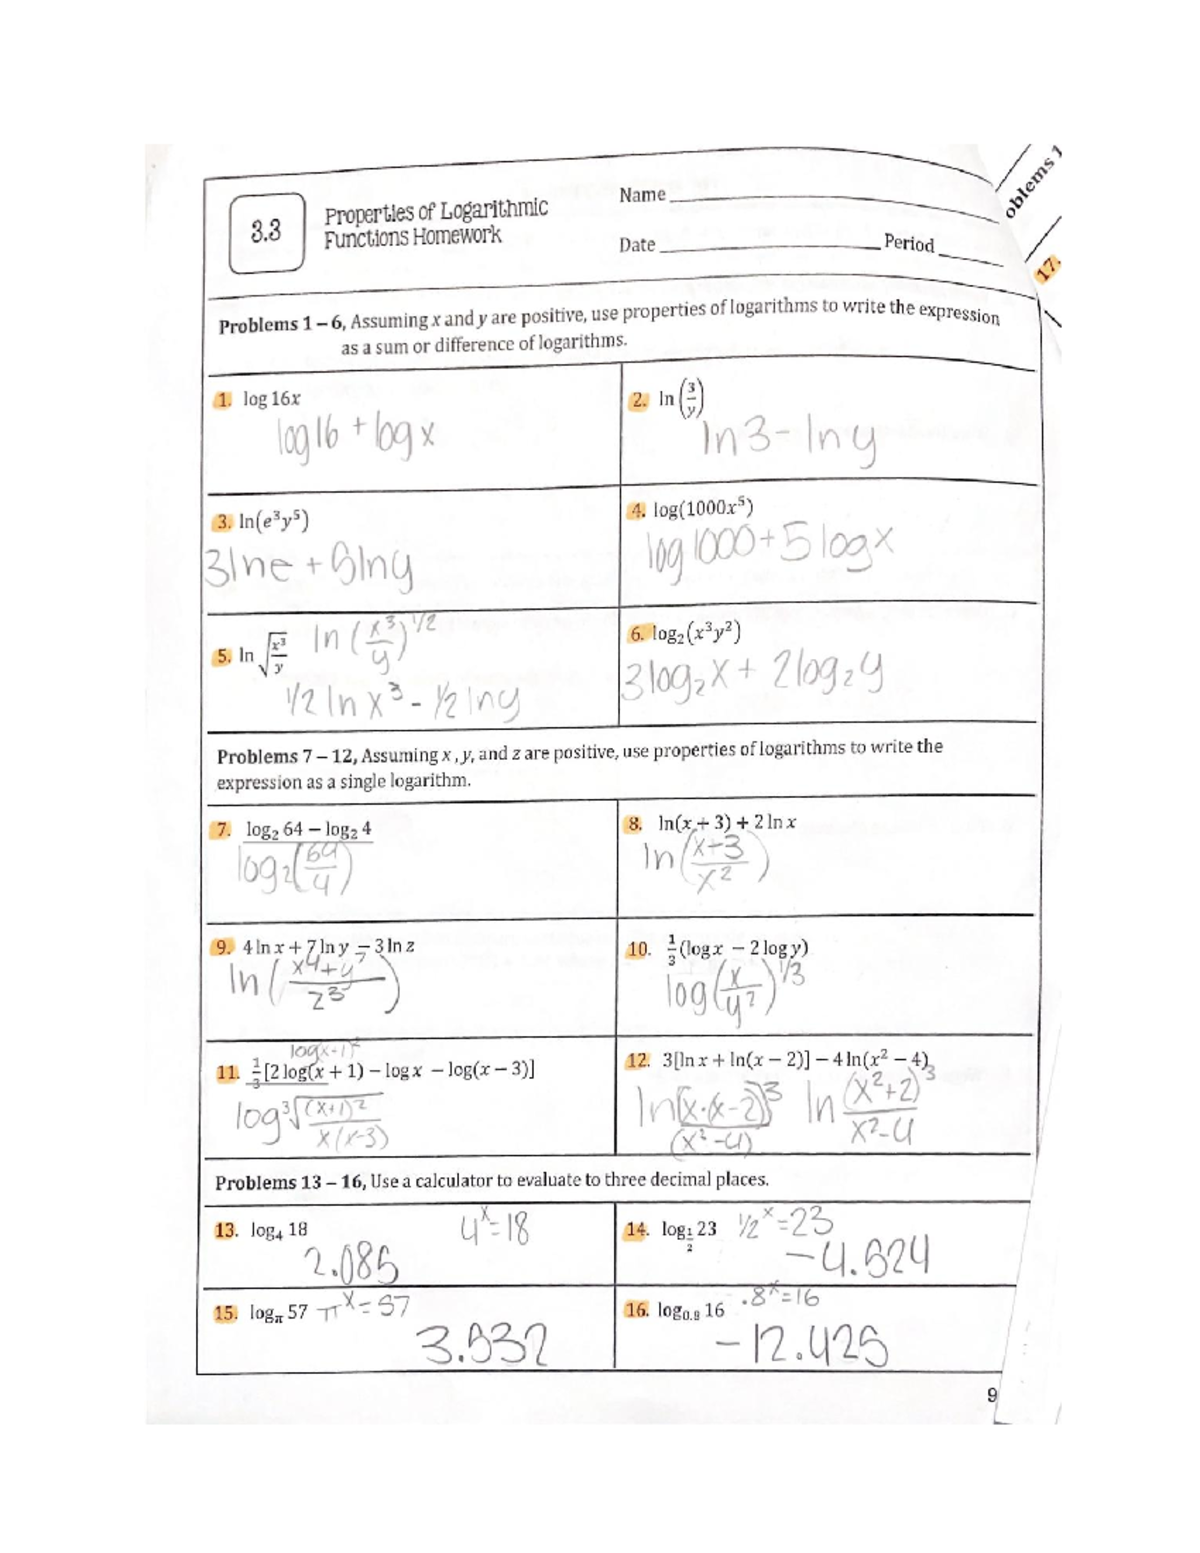 oblems 1
17.
3.3
Properties of Logarithmic
Functions Homework
Name
Date
Period
Problems 1 – 6, Assuming x and y are positive, use properties of logarithms to write the expression
as a sum or difference of logarithms.
1. log 16x
log16 + logx
2. ln(3/y)
ln3 - lny
3. ln(e³y⁵)
3lne + 5lny
4. log(1000x⁵)
log1000 + 5logx
5. ln √(x³/y)
ln(x³/y)^1/2
1/2 ln x³ - 1/2 lny
6. log₂(x³y²)
3log₂x + 2log₂y
Problems 7 – 12, Assuming x, y, and z are positive, use properties of logarithms to write the
expression as a single logarithm.
7. log₂ 64 – log₂ 4
log₂(64/4)
8. ln(x + 3) + 2 ln x
ln(x+3/x²)
9. 4 ln x + 7 ln y – 3 ln z
ln(x⁴+y⁷/z³)
10. 1/3(log x – 2 log y)
log(x/y²)^1/3
11. 1/3[2 log(x + 1) – log x – log(x – 3)]
log ³√((x+1)²/x(x-3))
12. 3[ln x + ln(x – 2)] – 4 ln(x² – 4)
ln[x·(x-2)]³/(x²-4)
ln (x²+2)³/x²-4
Problems 13 – 16, Use a calculator to evaluate to three decimal places.
13. log₄ 18
4ˣ=18
2.085
14. log½ 23
1/2ˣ=23
-4.524
15. logπ 57
πˣ=57
3.532
16. log₀.₈ 16
.8ˣ=16
-12.425
9